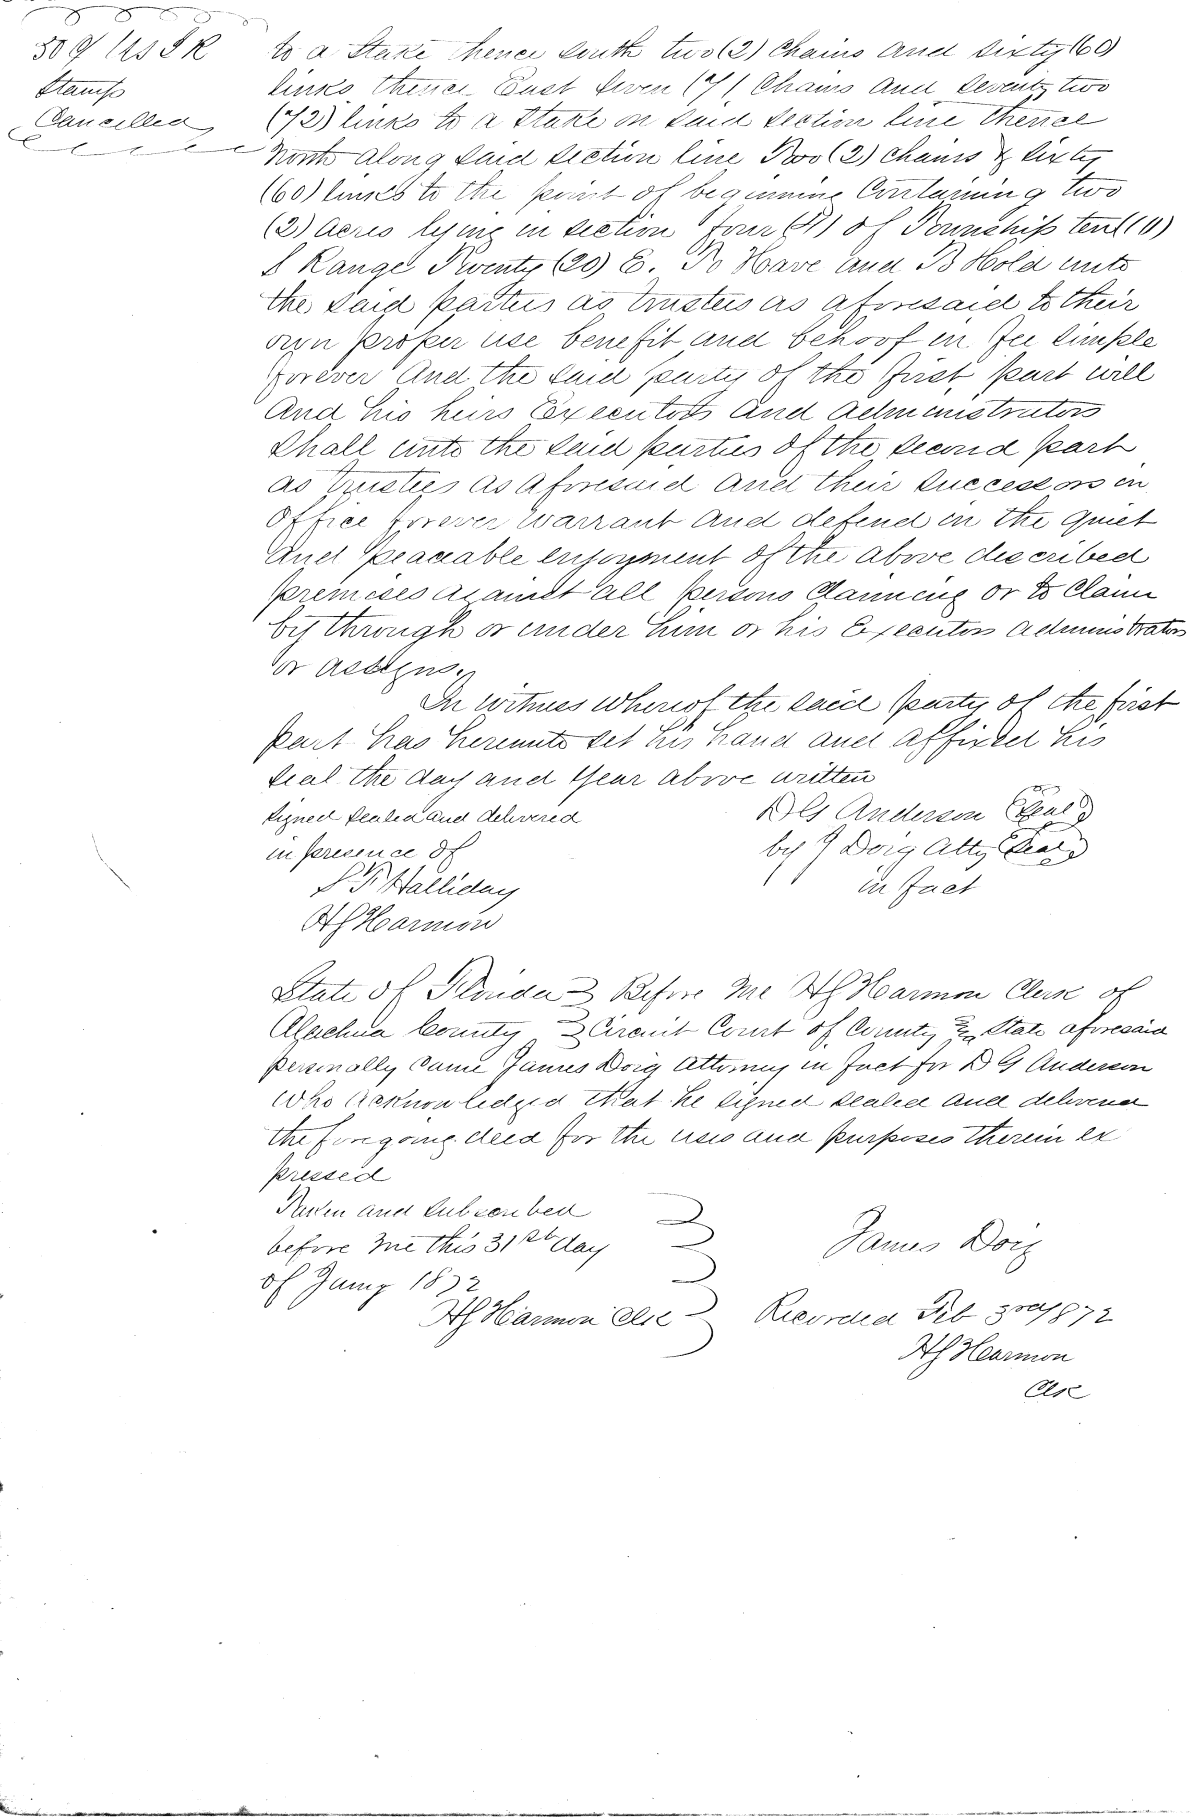 50 ¢ U S I R
Stamp
Cancelled
to a Stake thence south two (2) Chains and sixty (60)
links thence East Seven (7) Chains and Seventy two
(72) links to a Stake on said section line thence
North along said section line Two (2) chains & sixty
(60) links to the point of beginning Containing two
(2) acres lying in section four (4) of Township ten (10)
S Range Twenty (20) E. To Have and To Hold unto
the said parties as trustees as aforesaid to their
own proper use benefit and behoof in fee simple
forever And the said party of the first part will
And his heirs Executors and administrators
Shall unto the said parties of the second part
as trustees as aforesaid and their successors in
Office forever warrant and defend in the quiet
and peaceable enjoyment of the above described
premises against all persons Claiming or to Claim
by through or under him or his Executors administrators
or assigns.
In witness whereof the said party of the first
part has hereunto set his hand and affixed his
seal the day and year above written
signed sealed and delivered
in presence of
S F Halliday
H S Harmon
D G Anderson Seal
by J Doig Atty Seal
in fact
State of Florida } Before me H S Harmon Clerk of
Alachua County } Circuit Court of County & State aforesaid
personally came James Doig attorney in fact for D G Anderson
who acknowledged that he signed sealed and delivered
the foregoing deed for the uses and purposes therein ex
pressed
Taken and subscribed
before me this 31st day
of Jany 1872
H S Harmon Clk
James Doig
Recorded Feb 3rd 1872
H S Harmon
Clk